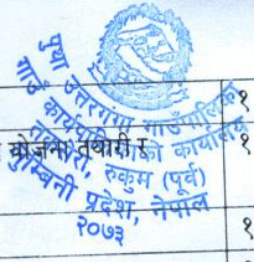 पुथा उत्तरगंगा गाउँपालिका
गाउँ कार्यपालिकाको कार्यालय
तकसेरा, रुकुम (पूर्व)
लुम्बिनी प्रदेश, नेपाल
२०७३
योजना तयारी र
१
१
१